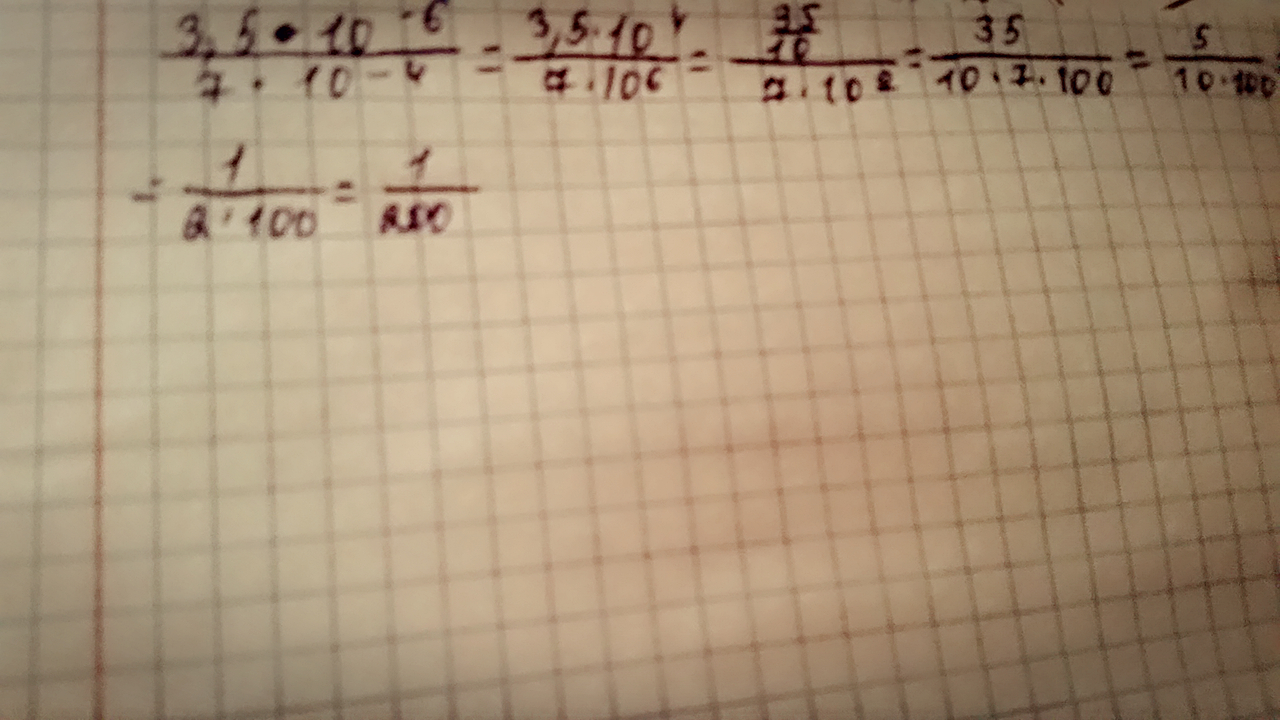 3,5 • 10⁻⁶ / 7 · 10⁻⁴ = 3,5·10⁴ / 7·10⁶ = 35/10 / 7·10² = 35 / 10·7·100 = 5 / 10·100 =
= 1 / 2·100 = 1 / 200